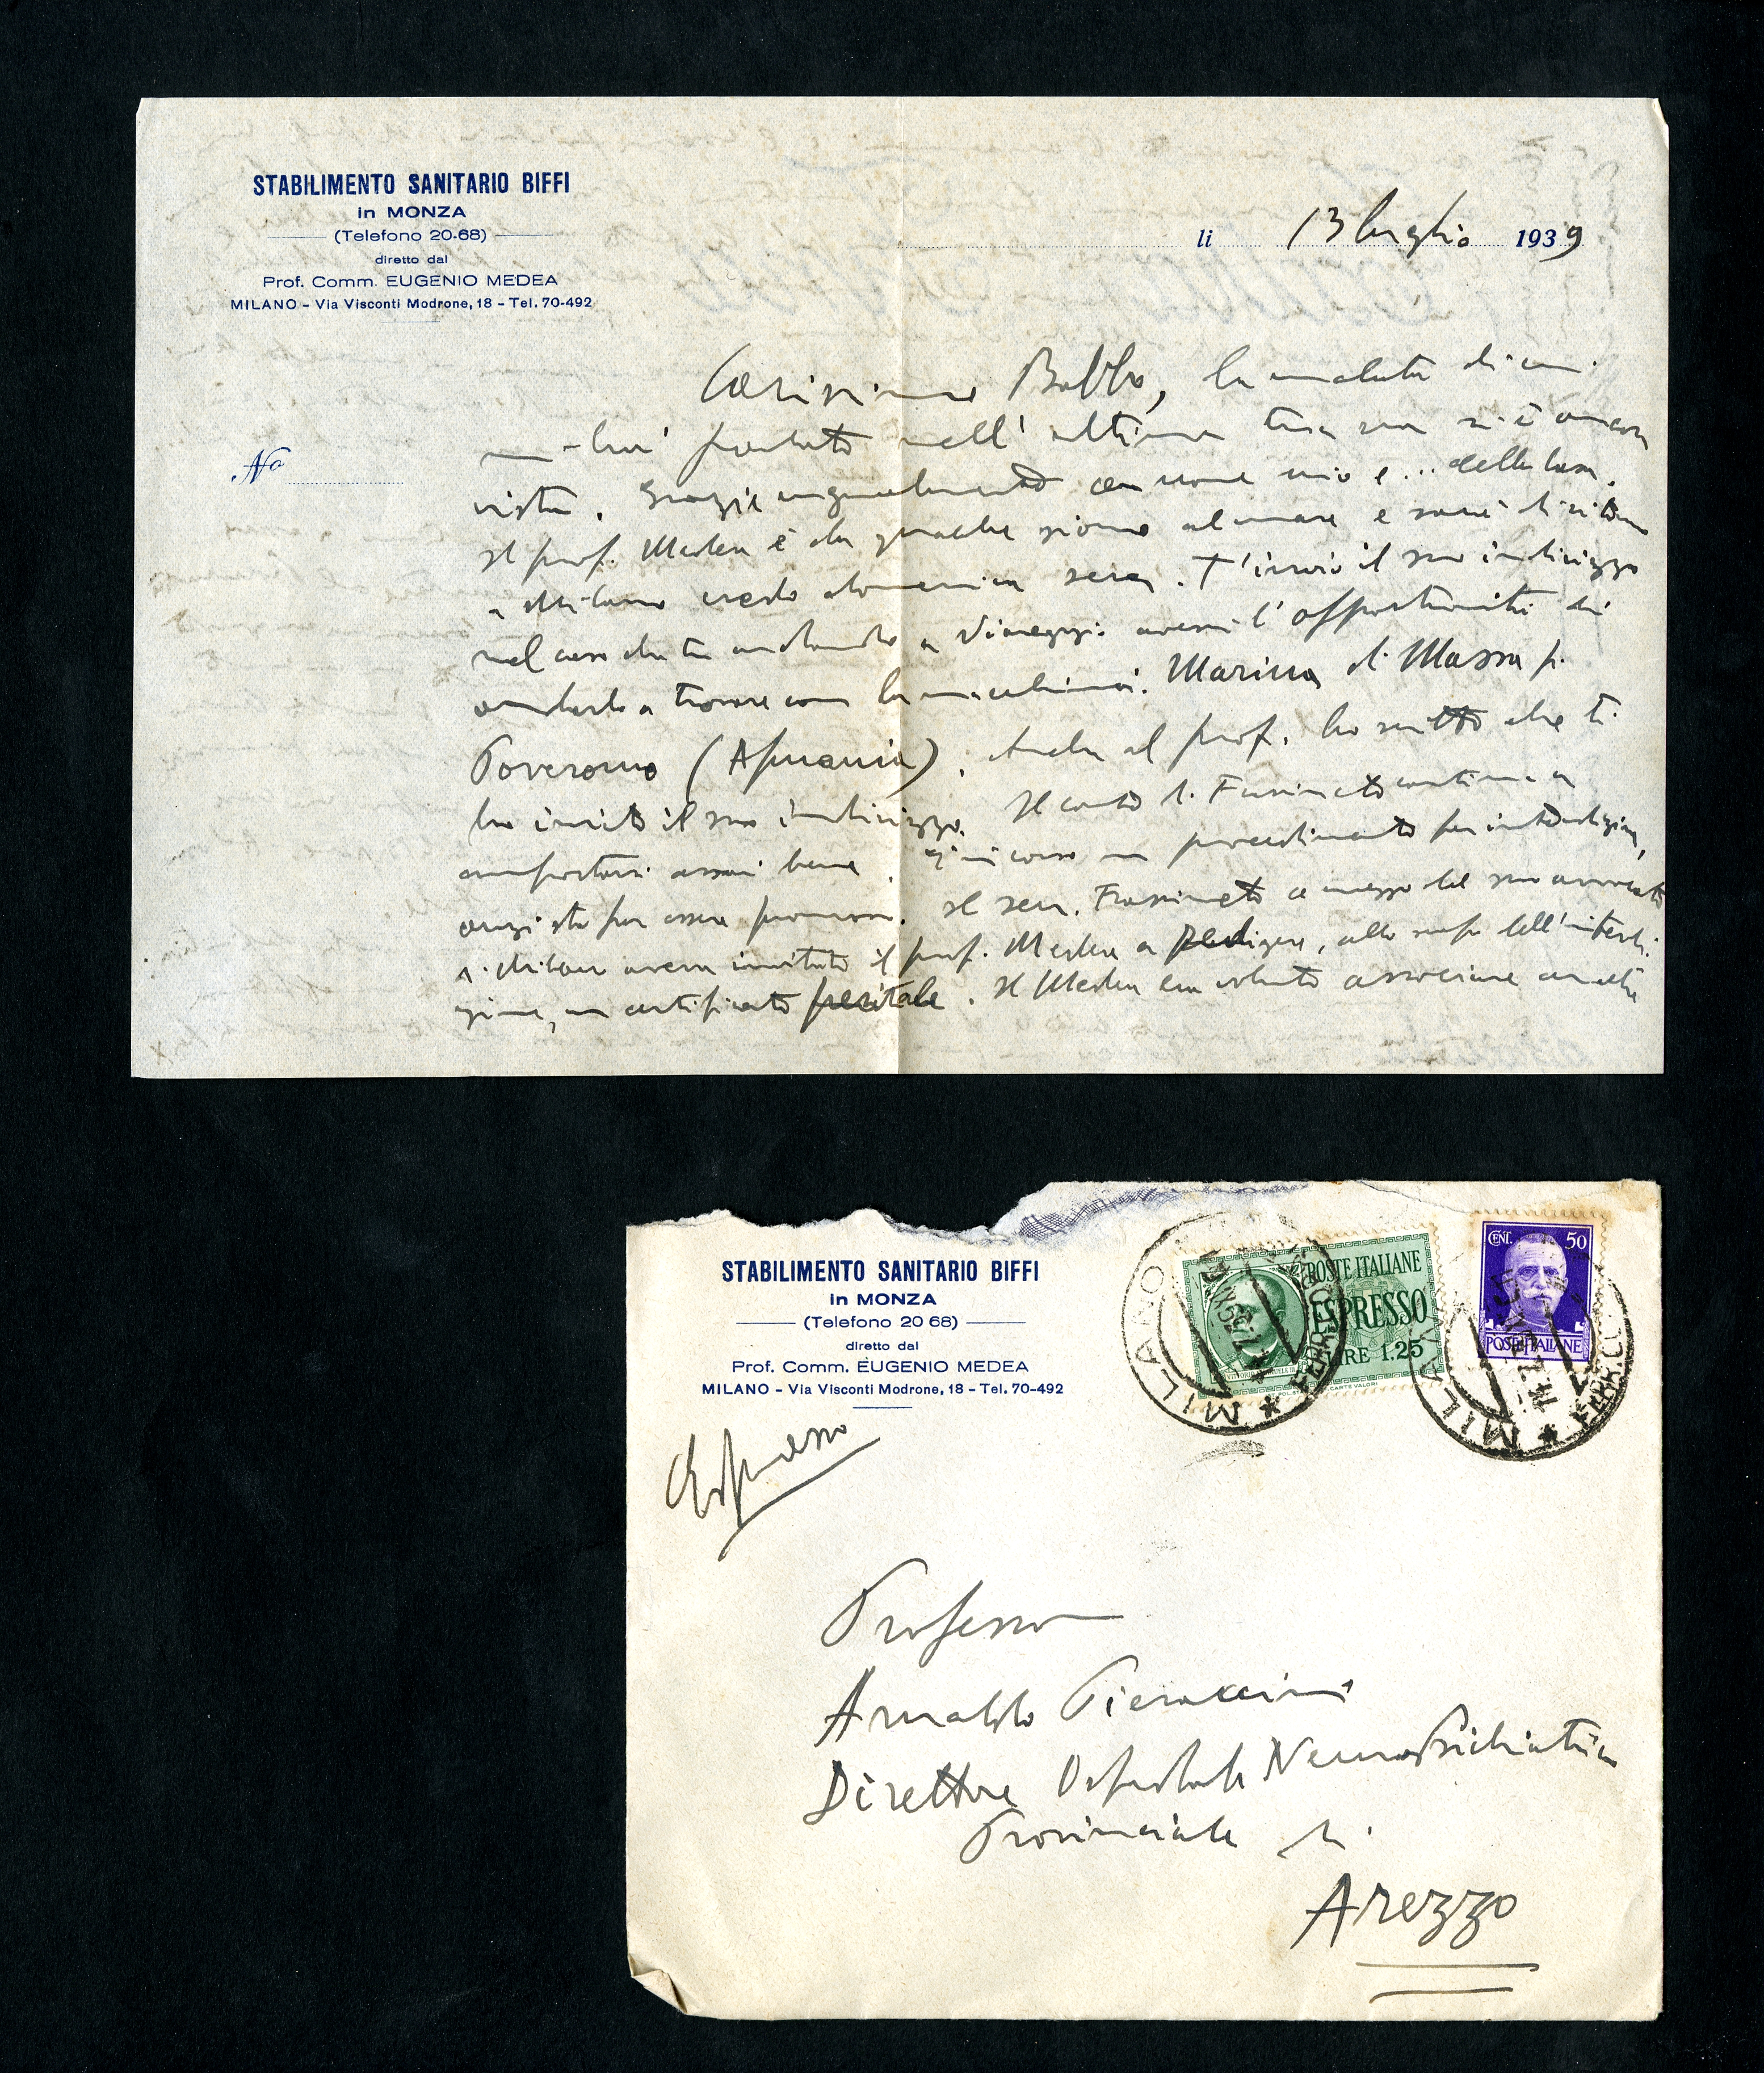 STABILIMENTO SANITARIO BIFFI
in MONZA
(Telefono 20-68)
diretto dal
Prof. Comm. EUGENIO MEDEA
MILANO - Via Visconti Modrone, 18 - Tel. 70-492
li 13 luglio 1939
No
Carissimo Babbo, la malata di cui
parlato nell'ultima tua non si è ancora
vista. Grazie ugualmente a nome mio e .. della Casa.
Il prof. Medea è da qualche giorno al mare e sarà di ritorno
a Milano credo domenica sera. T'invio il suo indirizzo
nel caso che tu andando a Viareggio avessi l'opportunità di
andarlo a trovare con la macchina: Marina di Massa p.
Poveromo (Apuania). Anche al prof. ho scritto che ti
ho inviato il suo indirizzo. Il conte di Frassineto continua a
comportarsi assai bene. È in corso un procedimento per interdizione,
anzi sta per essere promosso. Il sen. Frassineto a mezzo del suo avvocato
di Milano aveva invitato il prof. Medea a redigere, allo scopo dell'interdi-
zione, un certificato peritale. Il Medea ha voluto associare anche
STABILIMENTO SANITARIO BIFFI
in MONZA
(Telefono 20 68)
diretto dal
Prof. Comm. EUGENIO MEDEA
MILANO - Via Visconti Modrone, 18 - Tel. 70-492
POSTE ITALIANE
ESPRESSO
LIRE 1.25
CENT. 50
POSTE ITALIANE
MILANO
FERROVIA
MILANO
Espresso
Professor
Arnaldo Pieraccini
Direttore Ospedale NeuroPsichiatrico
Provinciale di
Arezzo